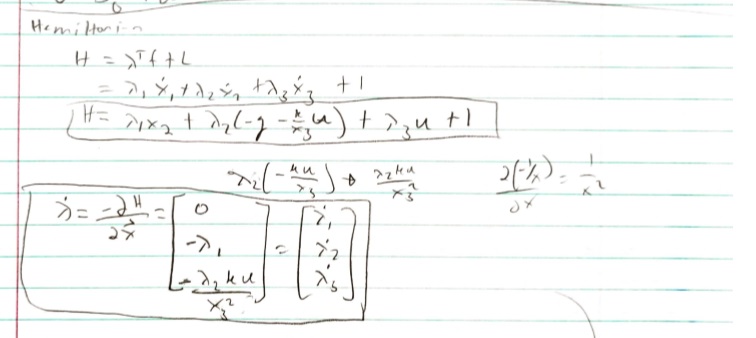 Hamiltonian
H = λᵀf + L
= λ₁ẋ₁ + λ₂ẋ₂ + λ₃ẋ₃ + 1
H = λ₁x₂ + λ₂(-g - k/x₃ u) + λ₃u + 1
λ₂(-ku/x₃) → λ₂ku/x₃² ∂(-1/x)/∂x = 1/x²
λ̇ = -∂H/∂x⃗ = [0; -λ₁; -λ₂ku/x₃²] = [λ̇₁; λ̇₂; λ̇₃]